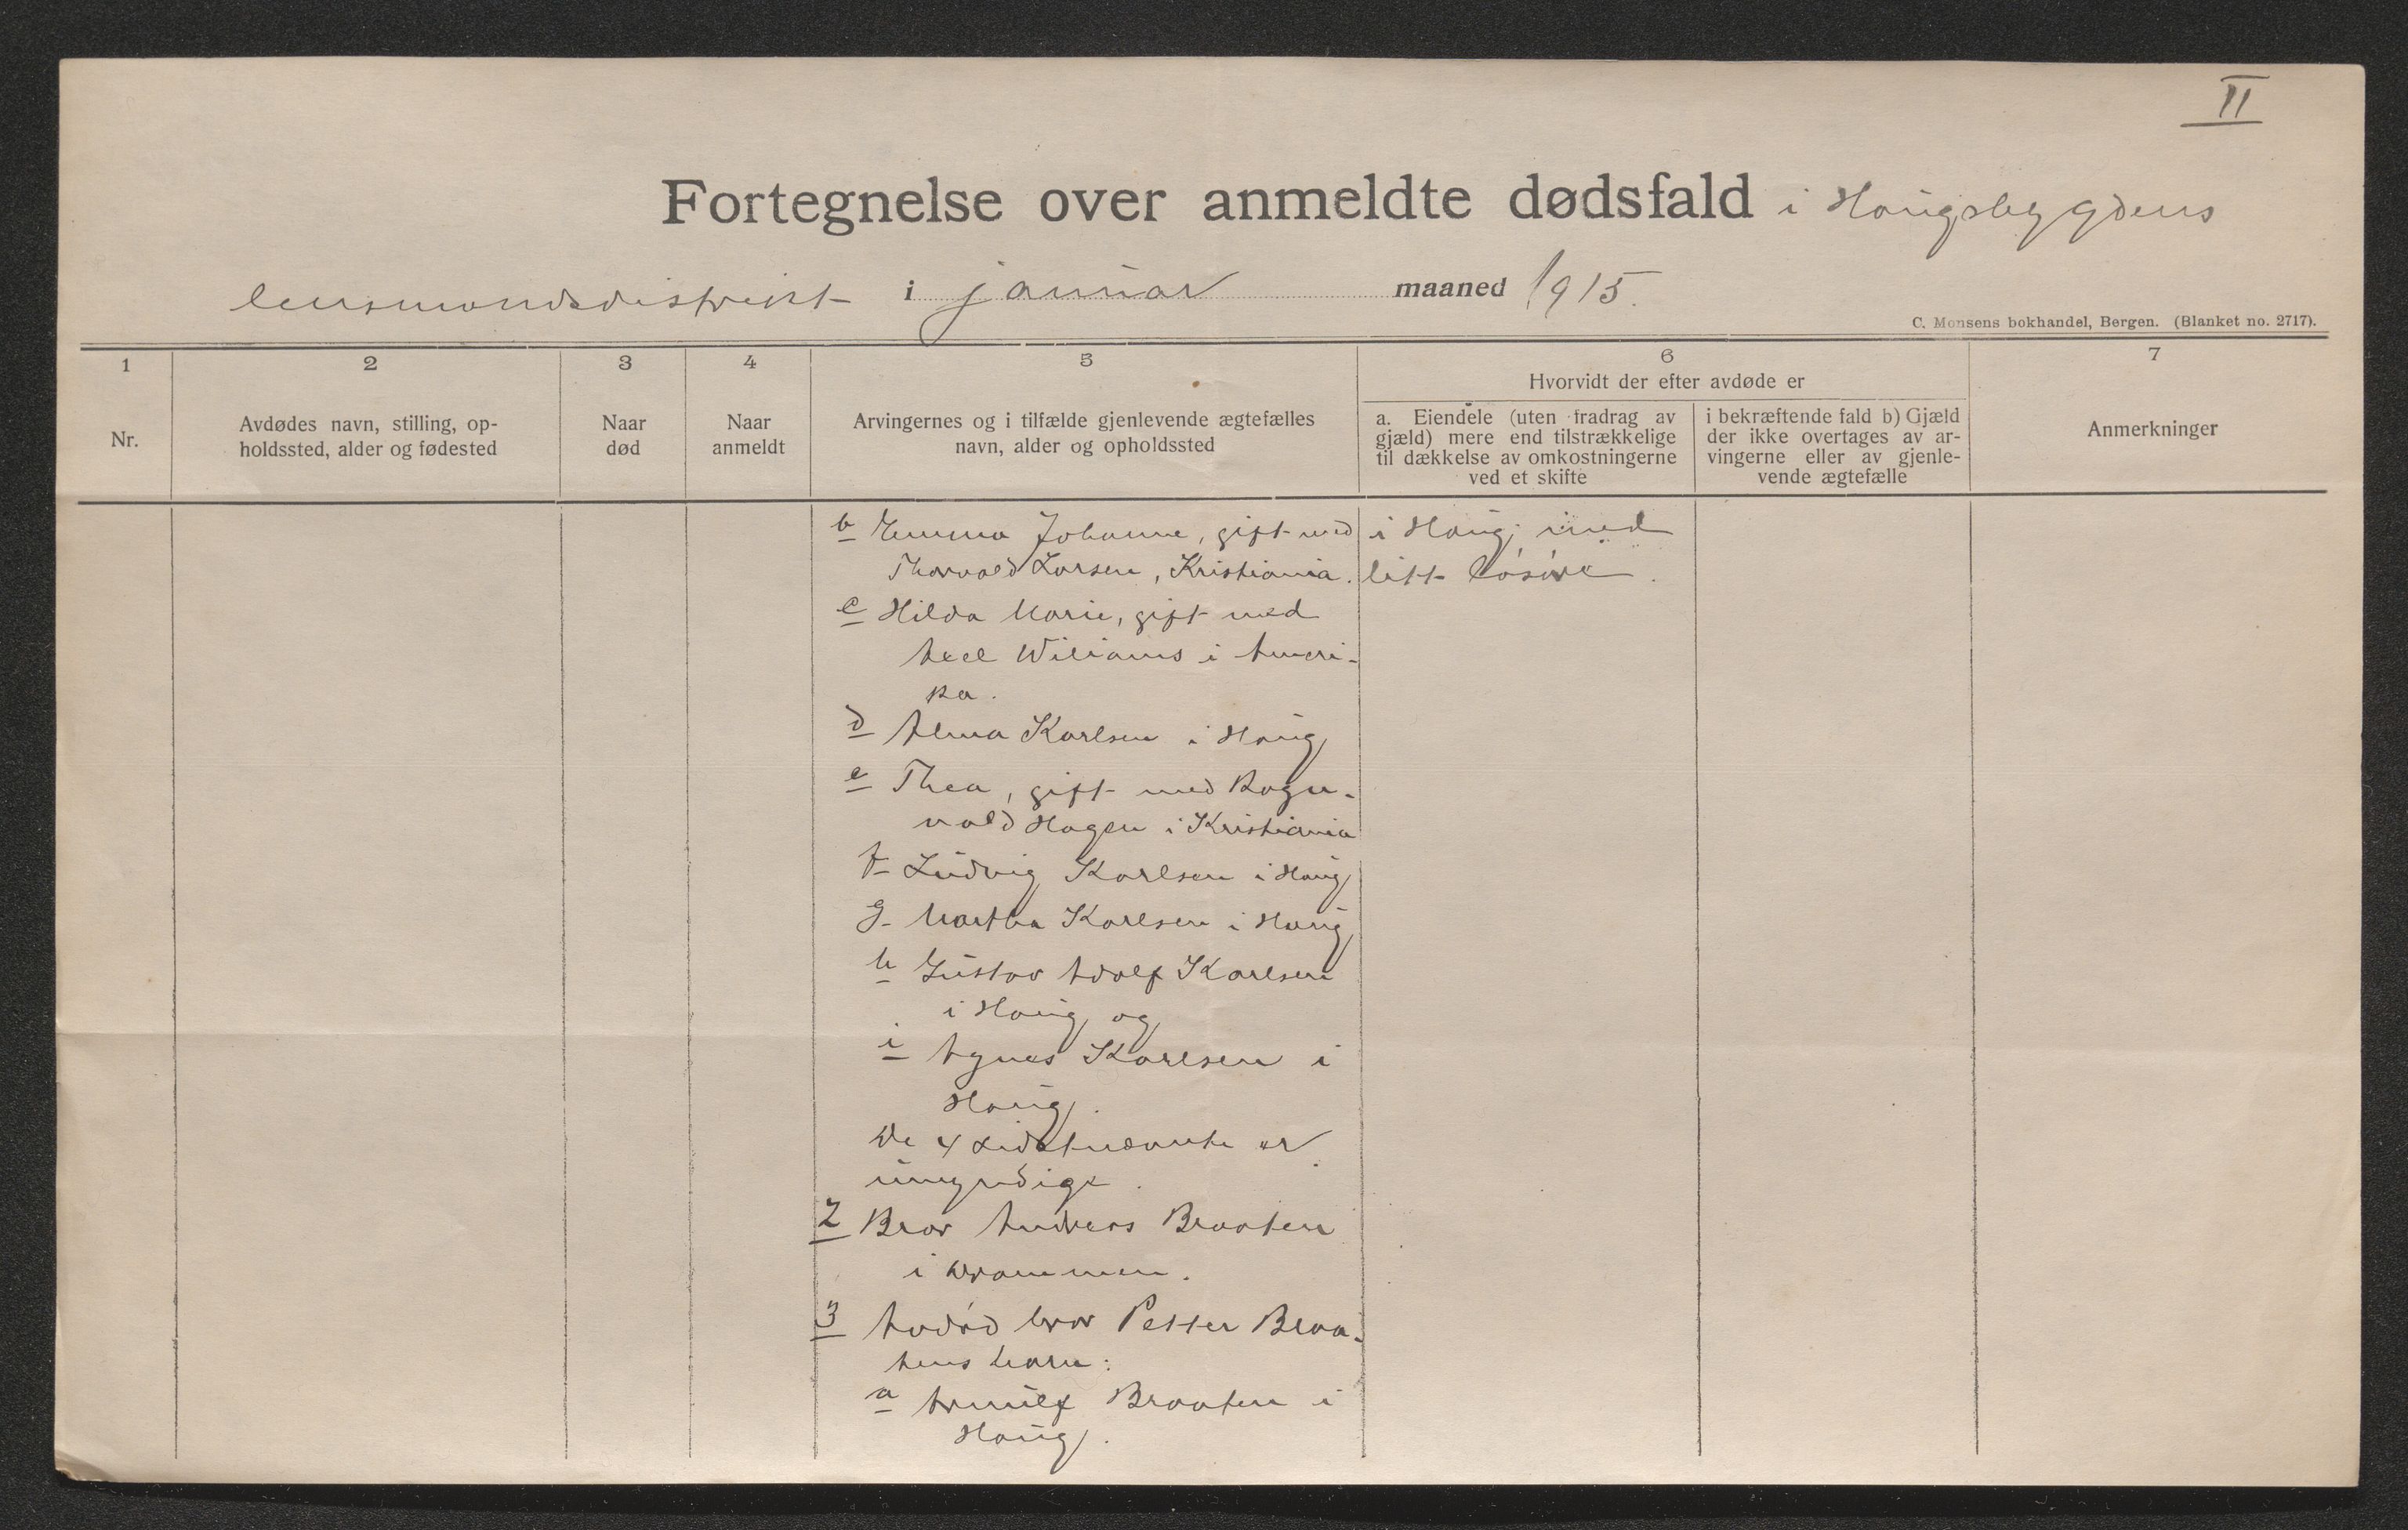 II
Fortegnelse over anmeldte dødsfald i Haugsbygdens
lensmandsdistrikt i januar maaned 1915.
C. Monsens bokhandel, Bergen. (Blanket no. 2717).
1
2
3
4
5
6
7
Nr.
Avdødes navn, stilling, op-
holdssted, alder og fødested
Naar
død
Naar
anmeldt
Arvingernes og i tilfælde gjenlevende ægtefælles
navn, alder og opholdssted
Hvorvidt der efter avdøde er
a. Eiendele (uten fradrag av
gjæld) mere end tilstrækkelige
til dækkelse av omkostningerne
ved et skifte
i bekræftende fald b) Gjæld
der ikke overtages av ar-
vingerne eller av gjenle-
vende ægtefælle
Anmerkninger
b Emma Johanne, gift med
Thorvald Larsen, Kristiania.
c Hilda Marie, gift med
Axel Wiliams i Ameri-
ka.
d Alma Karlsen i Haug
e Thea, gift med Ragn-
vald Hagen i Kristiania
f Ludvig Karlsen i Haug
g Martha Karlsen i Haug
h Gustav Adolf Karlsen
i Haug og
i Agnes Karlsen i
Haug.
De 4 sidstnævnte er
umyndige.
2 Bror Andreas Braaten
i Drammen.
3 Avdød bror Petter Braa-
tens barn:
a Arnulf Braaten i
Haug.
i Haug, med
litt løsøre.